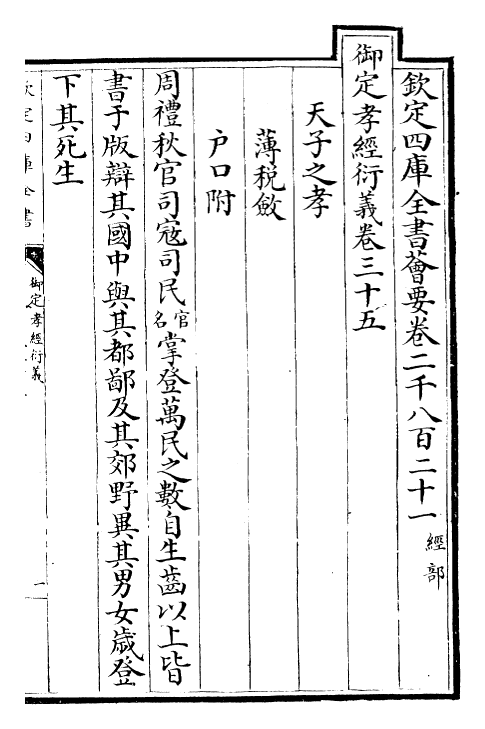 欽定四庫全書薈要卷二千八百二十一 經部
御定孝經衍義卷三十五
天子之孝
薄税斂
户口附
周禮秋官司寇司民官名掌登萬民之數自生齒以上皆
書于版辯其國中與其都鄙及其郊野異其男女歲登
下其死生
欽定四庫全書
御定孝經衍義
一